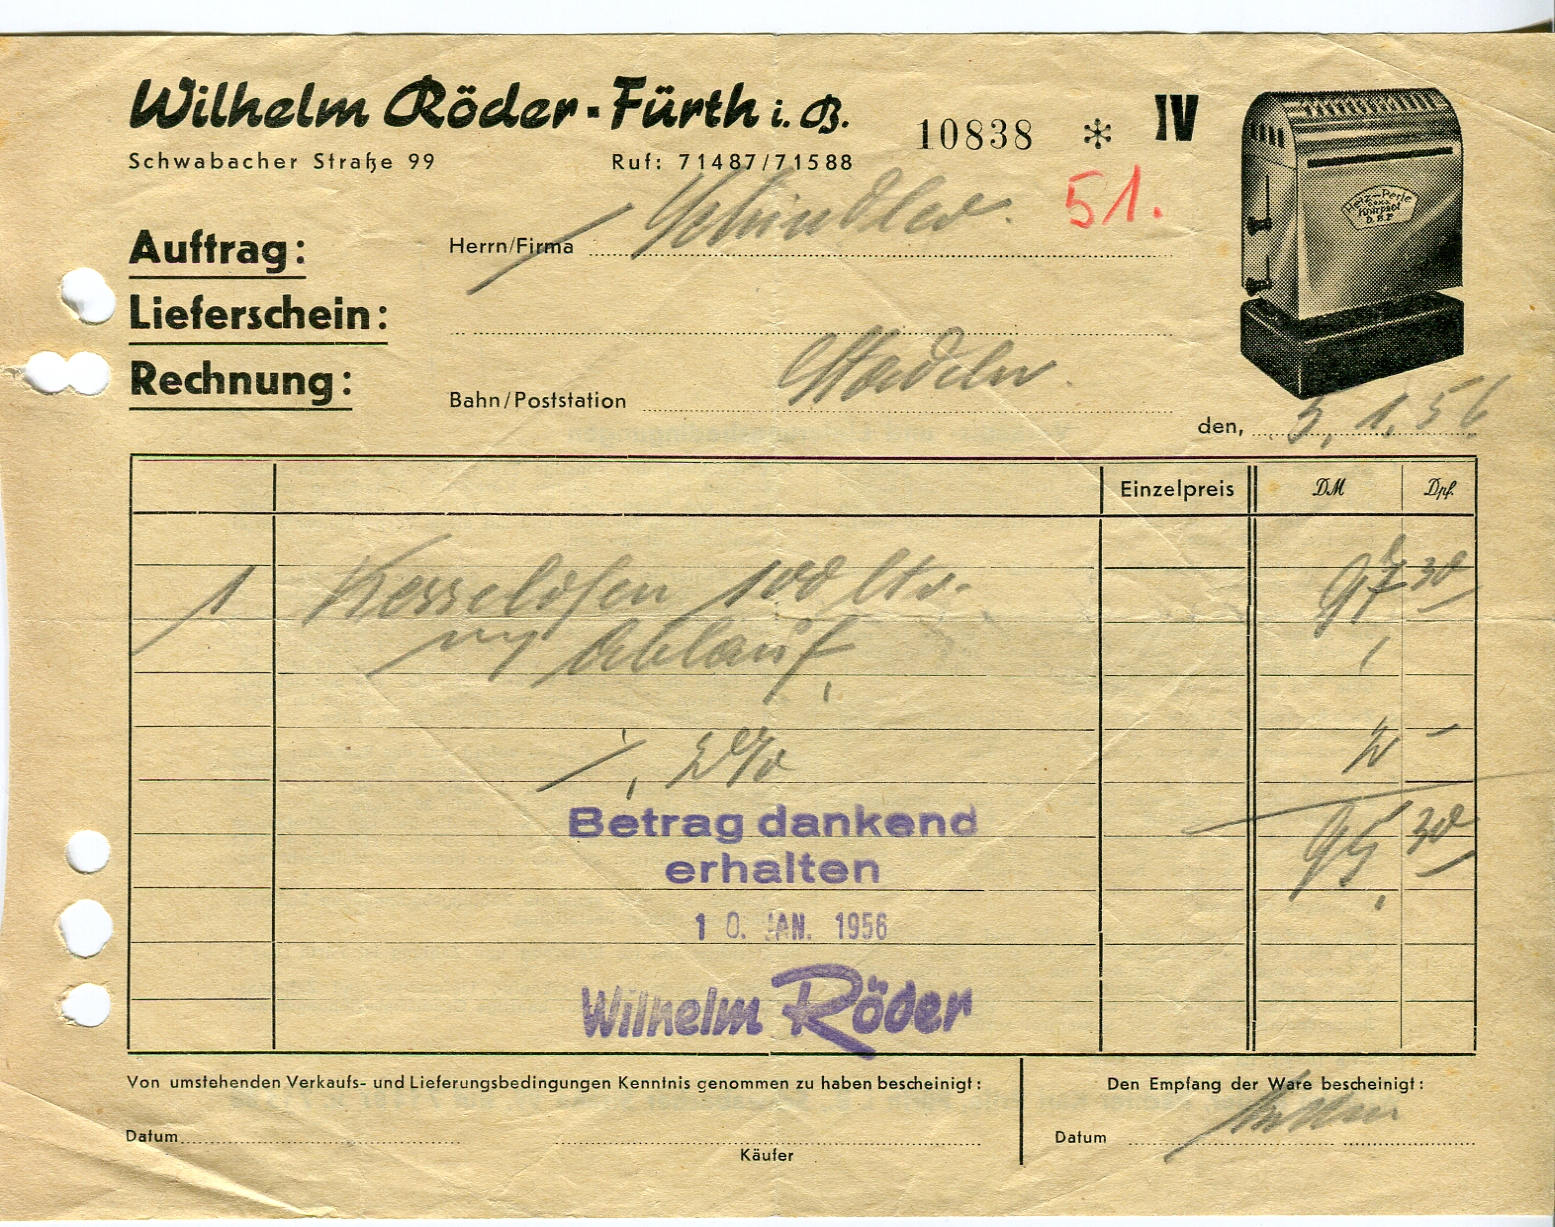 Wilhelm Röder - Fürth i. B.
10838 * IV
Schwabacher Straße 99 Ruf: 71487/71588
51.
Auftrag:
Herrn/Firma Schindler.
Lieferschein:
Rechnung:
Bahn/Poststation Stadeln.
den, 5.1.56
Heiz-Perle
D.B.P
Einzelpreis DM Dpf.
1 Kesselofen 100 ltr. 97 30
Ablauf
2% 2 –
95 30
Betrag dankend
erhalten
10. JAN. 1956
Wilhelm Röder
Von umstehenden Verkaufs- und Lieferungsbedingungen Kenntnis genommen zu haben bescheinigt:
Datum
Käufer
Den Empfang der Ware bescheinigt:
Datum